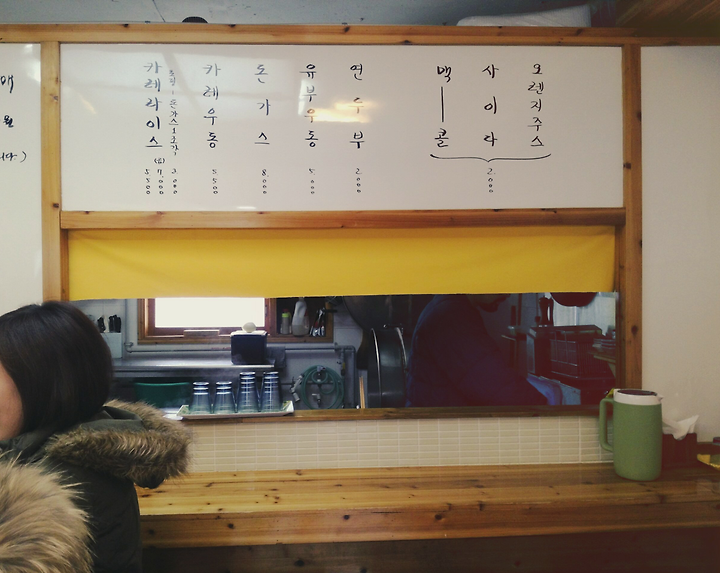 매
원
니다.)
카레라이스 5.500
7.000
돈가스1조각
카레우동 5.500
돈가스 8.000
유부우동 5.000
연두부 2.000
맥ㅣ콜
사이다
오렌지주스
2.000